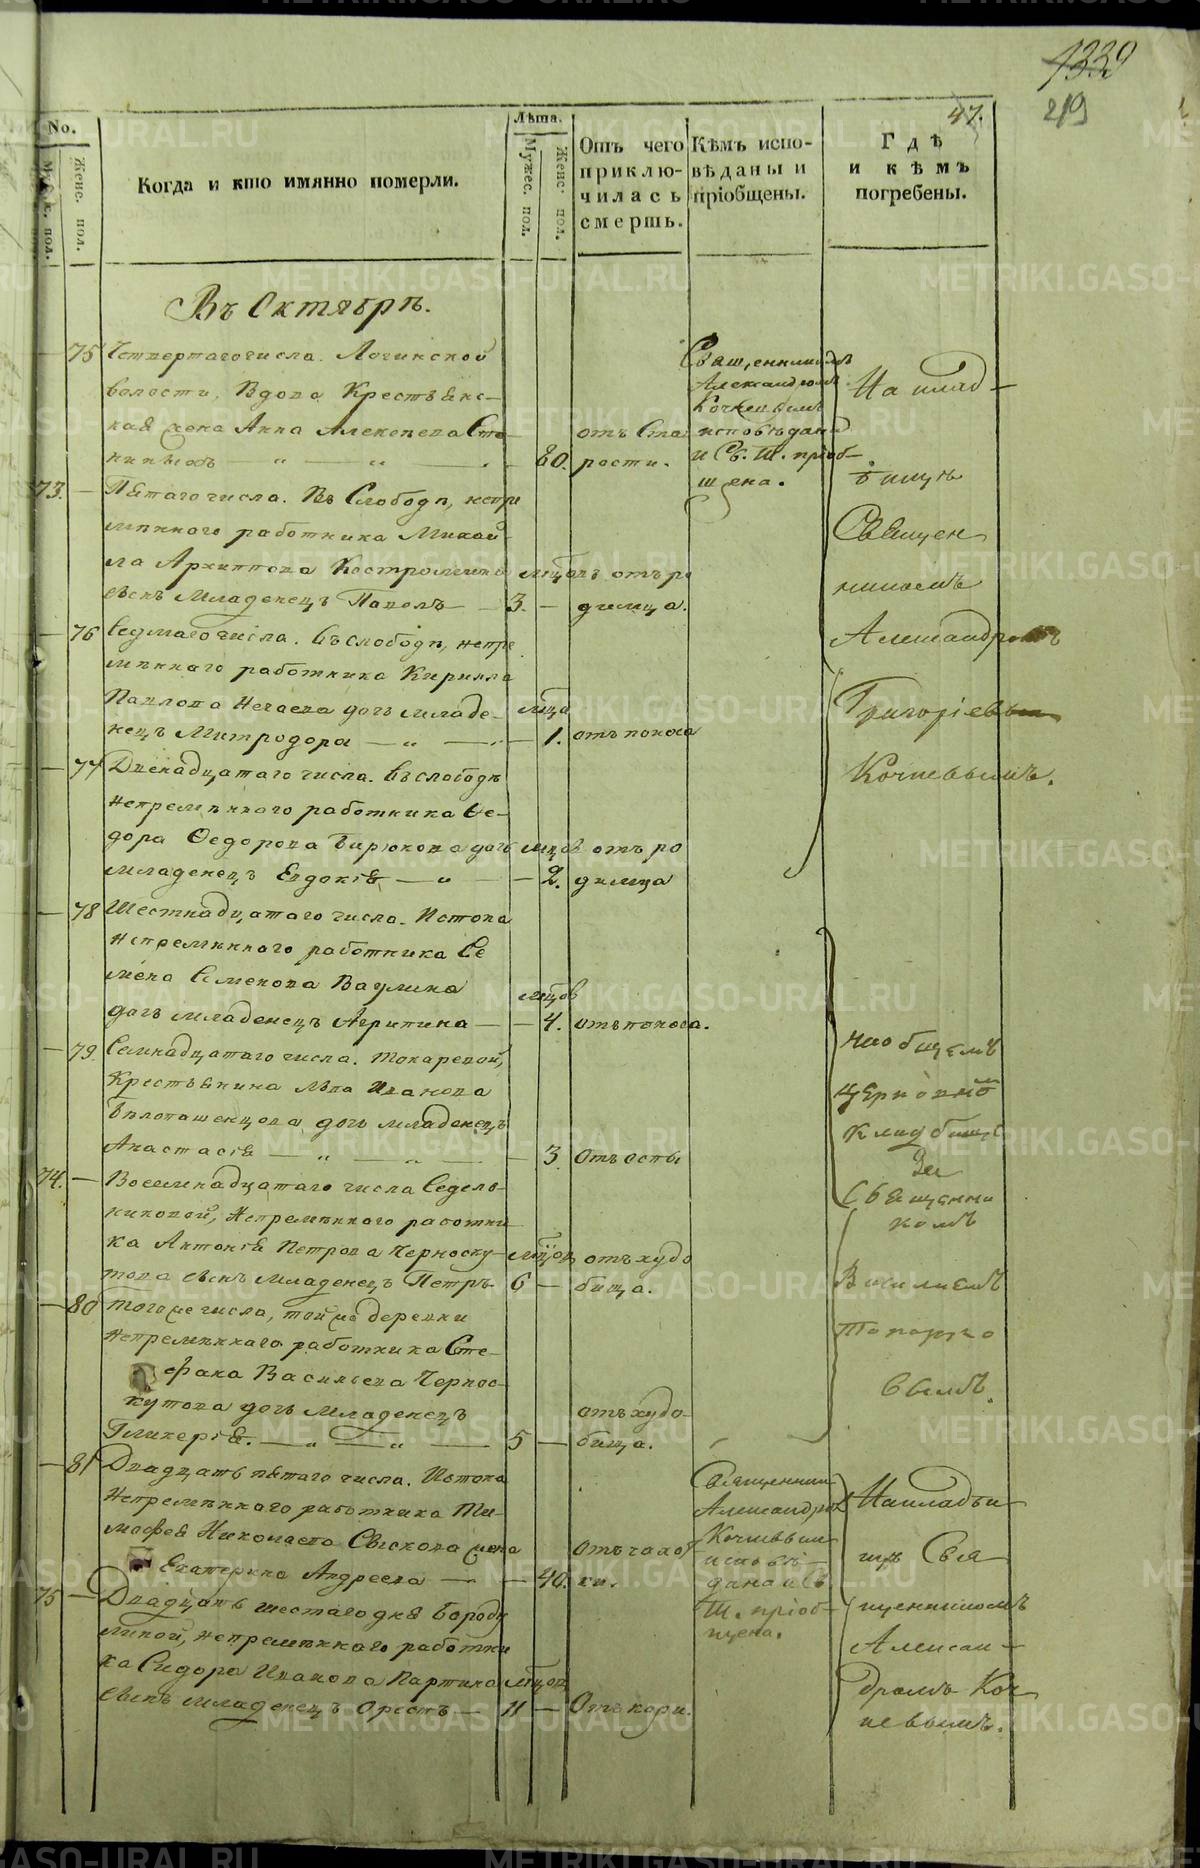 1339
219
47.
No.
Мужес. пол.
Женс. пол.
Когда и кто имянно померли.
Лѣта.
Мужес. пол.
Женс. пол.
Отъ чего приклю-
чилась смерть.
Кѣмъ испо-
вѣданы и
пріобщены.
Гдѣ
и кѣмъ
погребены.
Въ Октябрѣ.
75 Четвертаго числа. Логинской
волости, Вдова Крестьянс-
кая жена Анна Алексѣева
80. отъ Ста
рости.
Священникомъ
Александромъ
Кочневымъ
исповѣдана
и Св. Т. пріоб-
щена.
На клад-
бищѣ
Священ
никомъ
Александромъ
Григоріевымъ
Кочневымъ.
73. Пятаго числа. Въ Слободѣ, непре
мѣннаго работника Михай-
ла Архиппова Костромина
сынъ Младенецъ Павелъ 3. мѣцовъ отъ ро
димца.
76 Седмаго числа. Въ слободѣ, непре
мѣннаго работника Кирилла
Павлова Нечаева дочь младе-
нецъ Митродора 1. мѣца отъ поноса
77 Двенадцатаго числа. Въ слободѣ
непремѣннаго работника Ѳе-
дора Ѳедорова Бирюкова дочь
младенецъ Евдокія 2. мѣцовъ отъ ро
димца
78 Шестнадцатаго числа. Истока
непремѣннаго работника Се
мена Семенова Ваулина
дочь младенецъ Агрипина 4. мѣцовъ отъ поноса.
на общемъ
церковномъ
кладбищѣ
Священни
комъ
Василіемъ
Топорко
вымъ.
79. Семнадцатаго числа. Токаревой,
Крестьянина Льва Иванова
Бѣлоташенцова дочь младенецъ
Анастасія 3. отъ оспы
74. Восемнадцатаго числа Седель-
никовой, непремѣннаго работни
ка Антонія Петрова Черноску-
това сынъ Младенецъ Петръ 6 мѣцовъ отъ худо
бища.
80 Того же числа, той же деревни
непремѣннаго работника Сте-
фана Васильева Чернос-
кутова дочь Младенецъ
Гликерія. 5 отъ худо-
бища.
81 Двадцать пятаго числа. Истока
непремѣннаго работника Ти-
мофея Николаева Свискова жена
Екатерина Андреева 40. отъ чахот
ки.
Священник
Александром
Кочневым
исповѣ-
дана и Св.
Т. пріоб-
щена.
На кладби
щѣ Свя
щенникомъ
Алексан-
дромъ Коч
невымъ.
75 Двадцать шестаго дня Бороду
линой, непремѣннаго работни
ка Сидора Иванова Партина
сынъ младенецъ Орестъ 11 мѣцовъ Отъ кори.
METRIKI.GASO-URAL.RU